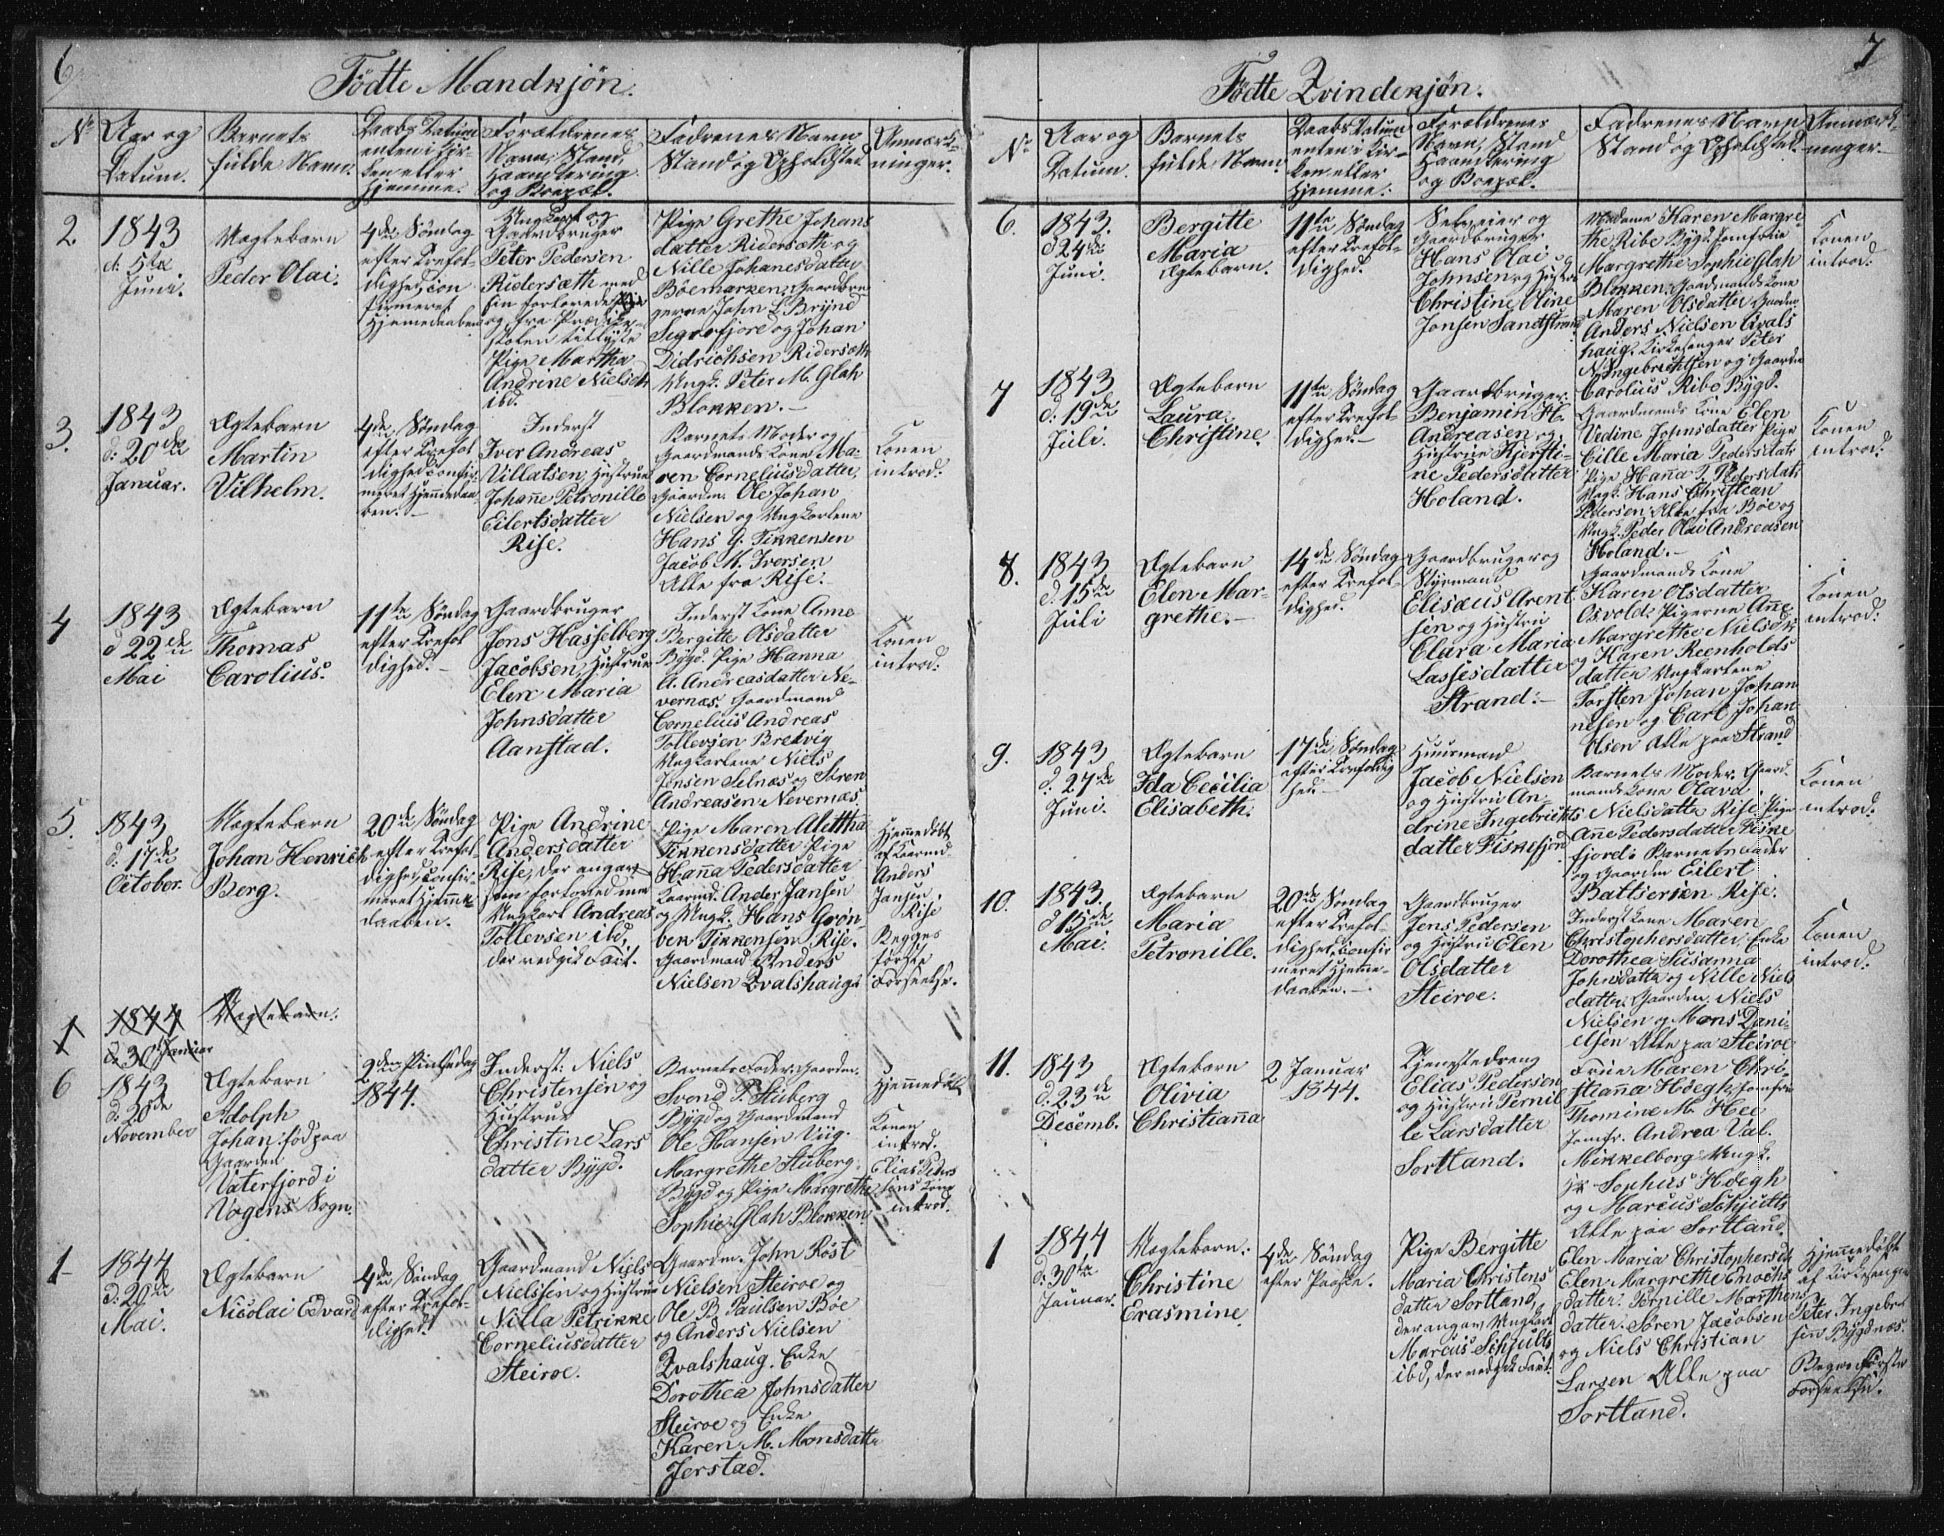 6
Fødte Mandkjøn.
No
Aar og
Datum.
Barnets
fulde Navn.
Daabs Datum
enten i Kir-
ken eller
Hjemme.
Forældrenes
Navn, Stand,
Haandtering
og Boepæl.
Fadrenes Navn
Stand og Opholdsted
Anmærk-
ninger.
2
1843
d. 5te
Juni.
Uægtebarn
Peder Olai.
4de Søndag
efter Trefol-
dighed, con
firmeret
Hjemedaaben
Ungkarl og
Gaardbruger
Peter Pedersen
Ridersæth med
sin forlovede
og fra Prædike-
stolen tillyste
Pige Martha
Andrine Nielsdtr
ibd.
Pige Grethe Johans
datter Ridersæth og
Nille Johanesdatter
Böemarken, Gaardbru
gerne John L. Brÿnd
Sigerfjore og Johan
Didrichsen Ridersæth
Ungk. Peter M. Glah
Blokken.
3.
1843
d: 20de
Januar.
Ægtebarn
Martin
Vilhelm.
4de Søndag
efter Trefol
dighed confir
meret Hjemedaa-
ben.
Inderst
Iver Andreas
Villatsen, Hustrue
Johanne Petronille
Eilertsdatter
Rise.
Barnets Moder og
Gaardmands Kone Ma-
ren Corneliusdatter,
Gaardm. Ole Johan
Nielsen og Ungkarlene
Hans G. Tikkensen
Jacob M. Iversen
Alle fra Rise.
Konen
introd:
4
1843
d 22de
Mai
Ægtebarn
Thomas
Carolius.
11te Søndag
efter Trefol
dighed.
Gaardbruger
Jens Hasselberg
Jacobsen, Hustrue
Elen Maria
Johnsdatter
Aanstad.
Inderst Kone Anne
Bergitte Olsdatter
Bÿgd. Pige Hanna
A. Andreasdatter Ne-
vernæs. Gaardmand
Cornelius Andreas
Tollevsen Bredvig
Ungkarlene Niels
Jensen Selnæs og Sören
Andreasen Nevernæs
Konen
introd:
5.
1843
d: 17de
October.
Uægtebarn
Johan Henrich
Berg.
20de Søndag
efter Trefol-
dighed, confir-
meret Hjemme
daaben.
Pige Andrine
Andersdatter
Rise, der angav
sig forlovet med
Ungkarl Andreas
Tollevsen ibd,
der vedgik Fait.
Pige Maren Alettha
Tikkensdatter. Pige
Hanna Pedersdatter
Kaarmd. Ander Jansen
og Ungk. Hans Grön-
bek Tikkensen Rise.
Gaardmand Anders
Nielsen Kvalshaug
Hjemmedöbt
af Kaarmd.
Anders
Jansen
Rise
Begges
förste
Forseelse.
1
1844
d: 30 Januar
Uægtebarn.
6
1843
d: 20de
November
Ægtebarn
Adolph
Johan. född paa
Gaarden
Vaterfjord i
Vagens Sogn.
2den Pintsedag
1844.
Inderst: Niels
Christensen og
Hustrue
Christine Lars
datter Bÿgd.
Barnets Fader. Gaardm.
Svend P. Stüberg
Bÿgd og Gaardmand
Ole Hansen Viig.
Margrethe Stüberg.
Bÿgd og Pige Margrethe
Sophie Glah Blokken
Hjemmedöbt
Konen
introd.
Elias Peders
sens Kone
introd.
1
1844
d: 20de
Mai.
Ægtebarn
Nicolai Edvard
4de Søndag
efter Trefol-
dighed.
Gaardmand Niels
Nielssen og Hustrue
Nilla Petrikke
Corneliusdatter
Steiroe.
Gaardm. John Röst
Nielsen Steiroe og
Ole B. Paulsen Böe
og Anders Nielsen
Kvalshaug. Enke
Dorothea Johnsdatter
Steiroe og Enke
Karen M. Monsdatter
Jerstad.
7
Fødte Kvindekjøn.
No
Aar og
Datum.
Barnets
fulde Navn.
Daabs Datum
enten i Kir-
ken eller
Hjemme.
Forældrenes
Navn, Stand
Haandtering
og Boepæl.
Fadrenes Navn
Stand og Opholdsted.
Anmærk-
ninger.
6.
1843.
d 24de
Juni.
Bergitte
Maria
Ægtebarn.
11te Søndag
efter Trefol-
dighed.
Selveier og
Gaardbruger
Hans Olai
Johnsen og Hustrue
Christine Oline
Jonsen Sandstrand
Madame Karen Margre-
the Ribe Bÿgd. Jomfrue
Margrethe Sophie Glah
Blokken. Gaardmands Kone
Maren Olsdatter Gaardm
Anders Nielsen Qvals
haug. Kirkesanger Peter
N. Ingebrechtsen og Gaardm
Carolius Ribo Bÿgd.
Konen
introd:
7
1843
d. 19de
Juli.
Ægtebarn
Laura
Christine
11te Søndag
efter Trefol
dighed.
Gaardbruger
Benjamin H.
Andreasen og
Hustrue Kjersti-
ne Pedersdatter
Holand.
Gaardmands Kone Elen
Vedine Johnsdatter Pige
Cille Maria Pedersdatr
Pige Hanna P. Pedersdatr
Ungk. Hans Christian
Pedersen. Alle fra Böe og
Ungk. Peder Olai Andreasen
Holand.
Konen
introd:
8.
1843
d. 15de
Juli
Ægtebarn
Elen Mar-
grethe.
14de Søndag
efter Trefol-
dighed.
Gaardbruger og
Styrmand
Elisæus Arent
sen og Hustru
Clara Maria
Lassesdatter
Strand.
Gaardmands Kone
Karen Olsdatter
Osvold. Pigerne Ane
Margrethe Nielsdtr
og Karen Reenholds
datter Ungkarlene
Torsten Johan Johan
nesen og Carl Johan
Olsen Alle paa Strand
Konen
introd:
9.
1843
d. 27de
Juni.
Ægtebarn
Ida Cecilia
Elisabeth.
17de Søndag
efter Trefoldig
hed.
Huusmand
Jacob Nielsen
og Hustru An-
drine Ingebrichts
datter Fiskefjord
Barnets Moder, Gaard-
mands Kone Olava
Nielsdatter Rise. Pige
Ane Pedersdatter Fiske
fjord. Barnets Fader
og Gaardm Eilert
Battsersen Rise.
Konen
introd:
10.
1843.
d 15de
Mai.
Ægtebarn
Maria
Petronille.
20de Søndag
efter Trefol-
dighed, confir
meret Hjemme-
daaben.
Gaardbruger
Jens Pedersen
og Hustru Elen
Olsdatter
Steiroe.
Inderst Kone Maren
Christophersdatter, Enke
Dorothea Susanna
Johnsdatter og Nille Niels
datter. Gaardm. Niels
Nielsen og Mons Dani-
elsen Alle paa Steiroe
Konen
introd:
11.
1843
d: 23de
Decemb.
Ægtebarn
Olivia
Christianna
2 Januar
1844.
Tjenestedreng
Elias Pedersen
og Hustru Pernil
le Larsdatter
Sortland.
Frue Maren Chri-
stianna Höegh, Jomfru
Thomine M. Hee
Jomfr. Andrea Val.
Mikkelborg Ungk.
Hr. Sophus Höegh
og Marcus Schjelts
Alle paa Sortland
1
1844
d: 30te
Januar.
Uægtebarn.
Christine
Erasmine
4de Søndag
efter Paaske.
Pige Bergitte
Maria Christens
datter Sortland,
der angav Ungkarl
Marcus Schjelts
ibd, der vedgik Fait.
Elen Maria Christophersdtr
Elen Margrethe Enochs
datter. Pernille Marthens
datter. Sören Jacobsen
og Niels Christian
Larsen Alle paa
Sortland.
Hjemmedöbt
af Kirkesanger
Peter Ingebri
sen Bÿgdnæs.
Begges Første
Forseelse.